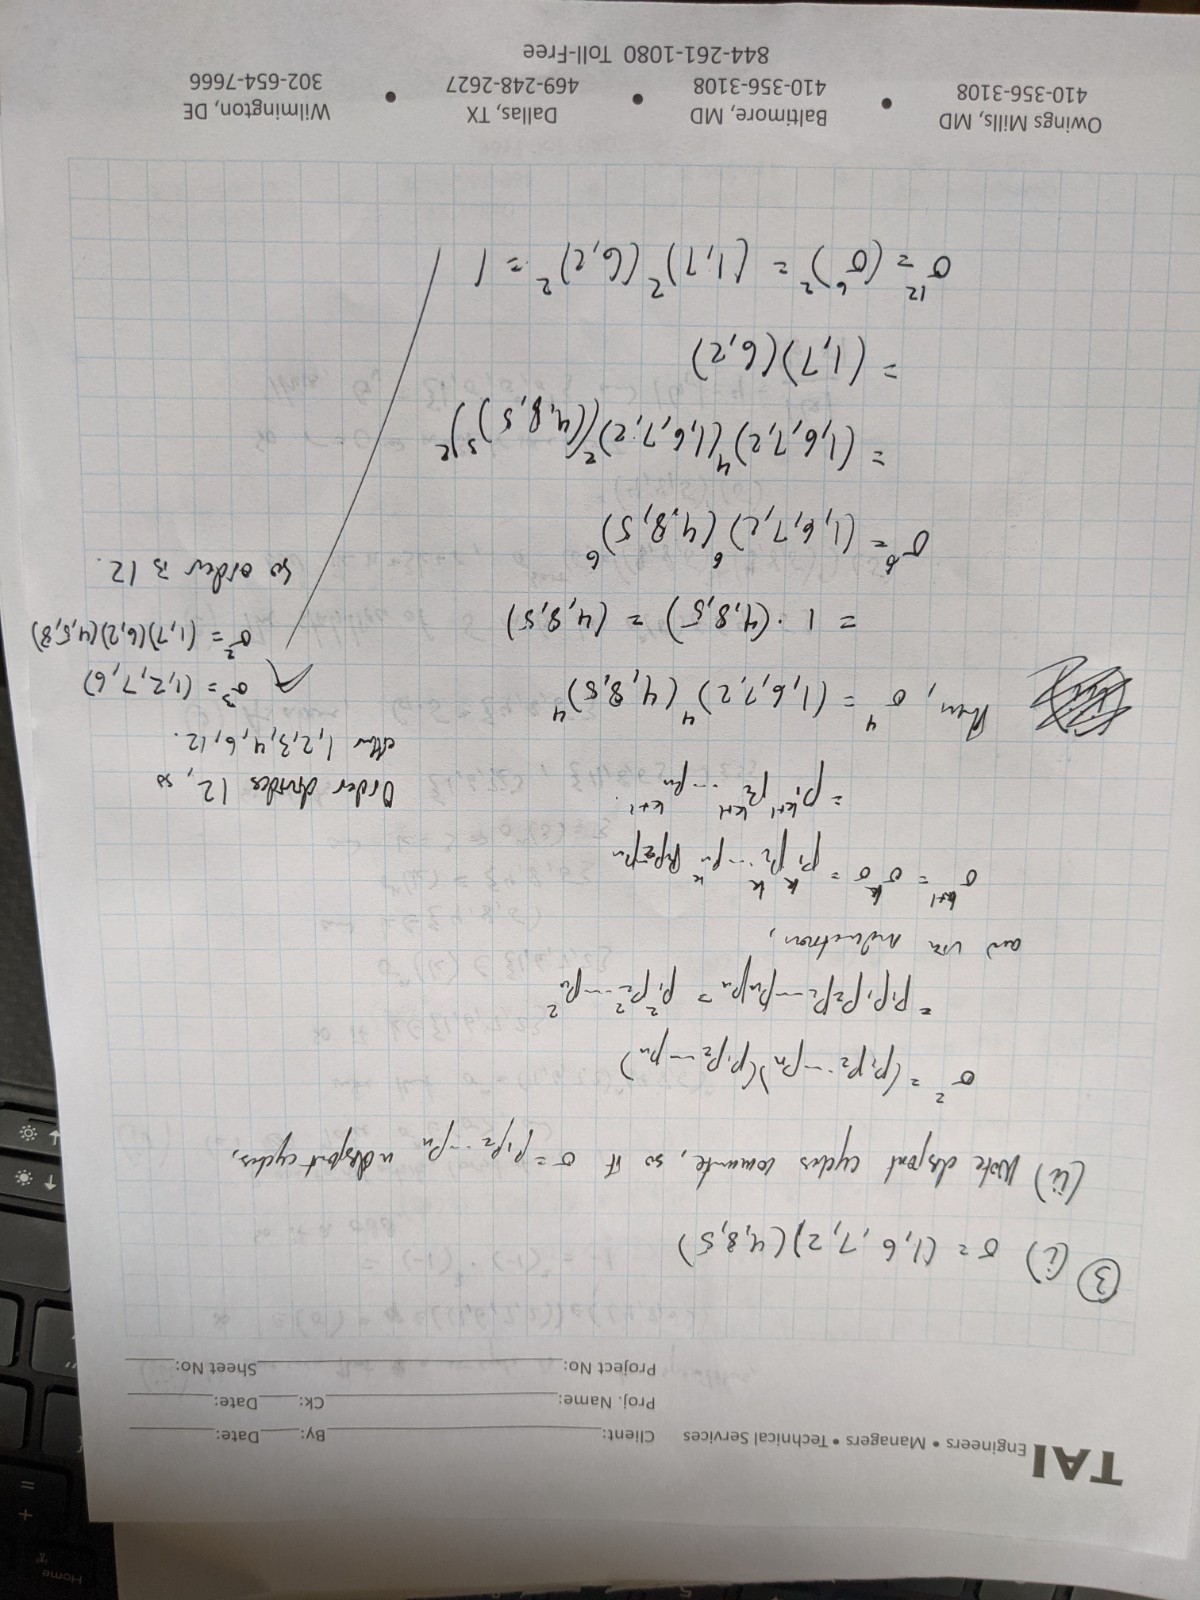 TAI Engineers • Managers • Technical Services
Client: By: Date:
Proj. Name: Ck: Date:
Project No: Sheet No:
③ (i) σ = (1,6,7,2)(4,8,5)
(ii) Note disjoint cycles commute, so if σ = p₁p₂⋯pₙ n disjoint cycles,
σ² = (p₁p₂⋯pₙ)(p₁p₂⋯pₙ)
= p₁p₁p₂p₂⋯pₙpₙ = p₁²p₂²⋯pₙ²
and via induction,
σᵏ⁺¹ = σᵏσ = p₁ᵏp₂ᵏ⋯pₙᵏ p₁p₂⋯pₙ
= p₁ᵏ⁺¹p₂ᵏ⁺¹⋯pₙᵏ⁺¹.
Then, σ⁴ = (1,6,7,2)⁴(4,8,5)⁴
= 1·(4,8,5) = (4,8,5)
σ⁶ = (1,6,7,2)⁶(4,8,5)⁶
= (1,6,7,2)⁴(1,6,7,2)²((4,8,5)³)²
= (1,7)(6,2)
σ¹² = (σ⁶)² = (1,7)²(6,2)² = 1
Order divides 12, so
either 1,2,3,4,6,12.
σ³ = (1,2,7,6)
σ² = (1,7)(6,2)(4,5,8)
so order is 12.
Owings Mills, MD • Baltimore, MD • Dallas, TX • Wilmington, DE
410-356-3108 410-356-3108 469-248-2627 302-654-7666
844-261-1080 Toll-Free
Home